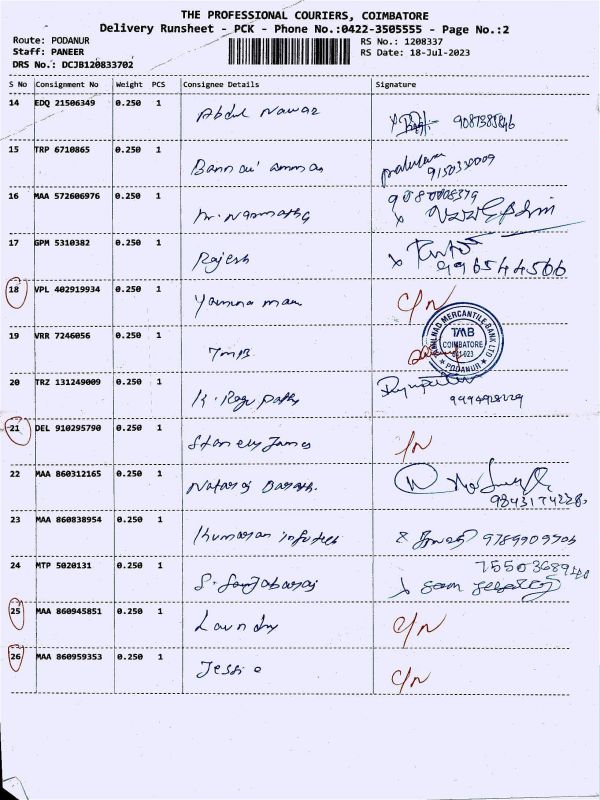 THE PROFESSIONAL COURIERS, COIMBATORE
Delivery Runsheet - PCK - Phone No.:0422-3505555 - Page No.:2
Route: PODANUR
Staff: PANEER
DRS No.: DCJB120833702
RS No.: 1208337
RS Date: 18-Jul-2023
S No Consignment No Weight PCS Consignee Details Signature
14 EDQ 21506349 0.250 1 Abdul Nawaz
15 TRP 6710865 0.250 1 Bannari amman
9150330009
16 MAA 572606976 0.250 1
9080008379
17 GPM 5310382 0.250 1 Rajesh
996544566
18 VPL 402919934 0.250 1 C/N
19 VRR 7246056 0.250 1 TMB
TAMILNAD MERCANTILE BANK LTD
TMB
COIMBATORE
641-023
PODANUR
20 TRZ 131249009 0.250 1 K. Ragupathy
21 DEL 910295790 0.250 1 Stanely James /N
22 MAA 860312165 0.250 1 Nataraj
9843174228
23 MAA 860838954 0.250 1 Kumaran infotech 9789909906
24 MTP 5020131 0.250 1
25 MAA 860945851 0.250 1 Laundry C/N
26 MAA 860959353 0.250 1 Jessie C/N